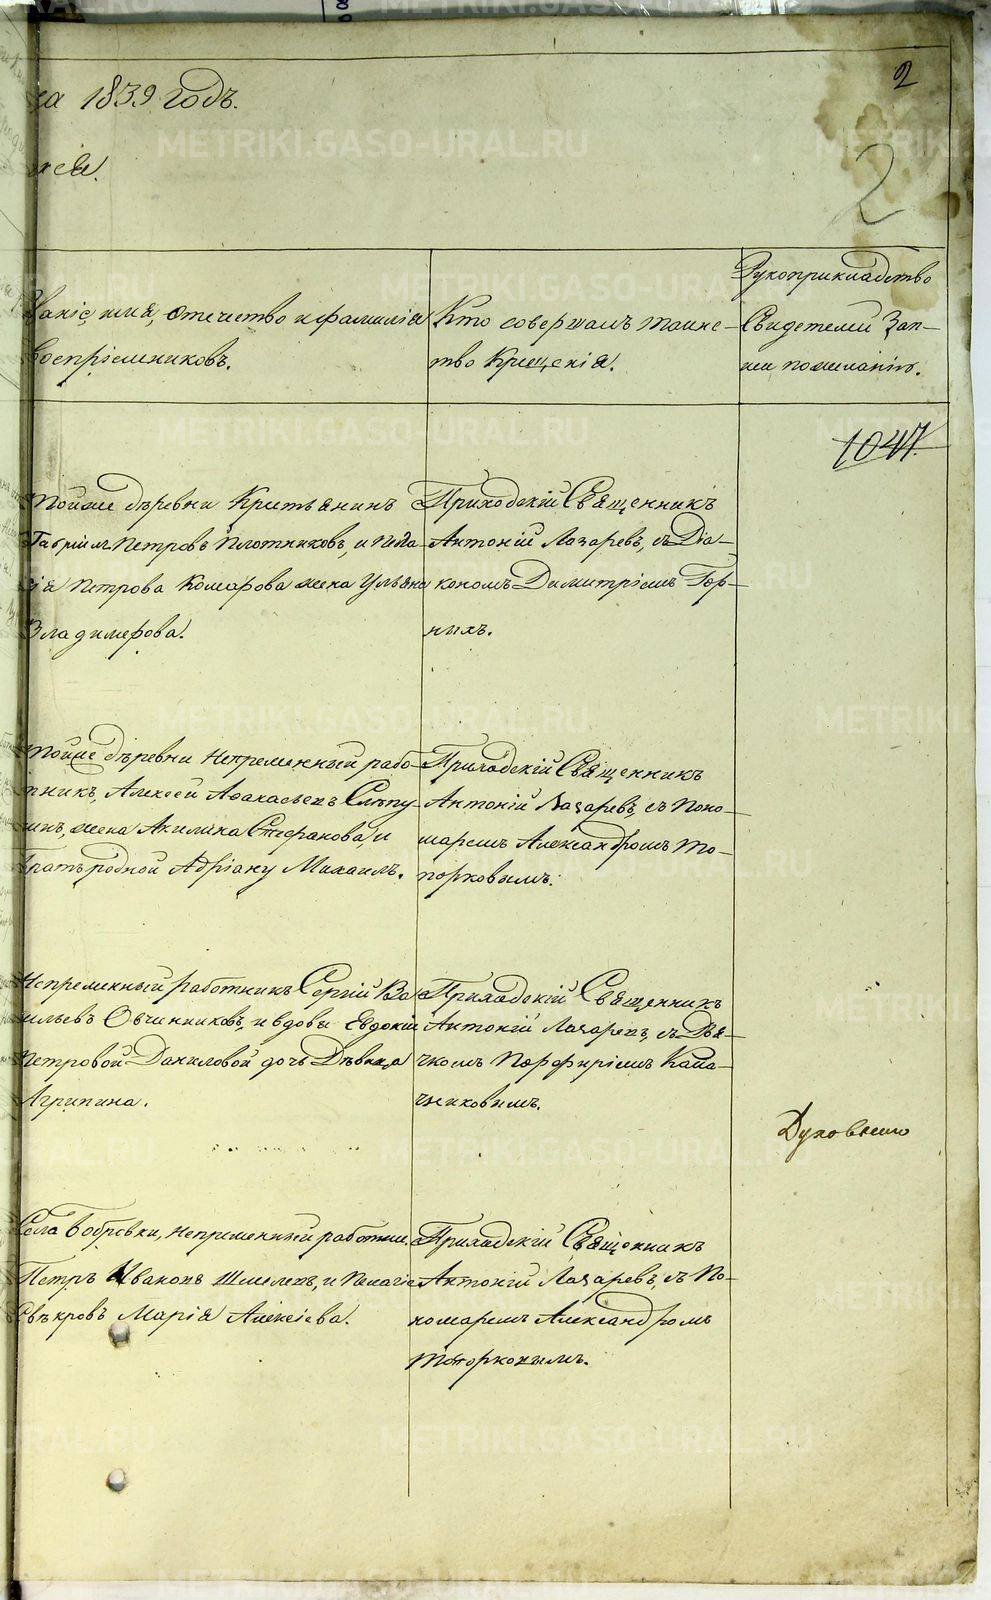 2
за 1839 годъ.
2
Званіе, имя, отечество и фамилія
воспріемниковъ.
Кто совершалъ таинс-
тво Крещенія.
Рукоприкладство
Свидетелей Зап-
иси пожеланію.
1047.
Тойже деревни Крестьянинъ
Гавріилъ Петровъ Плотниковъ, и Пела-
гія Петрова Комарова жена Ульяна
Владимерова.
Приходскій Священникъ
Антоній Лазаревъ, съ Діа-
кономъ Димитріемъ Гор-
ныхъ.
Тойже деревни Непременный рабо-
тникъ, Алексей Афанасьевъ Слепу-
жена Акилина Стефанова, и
братъ родной Адріану Михаилъ.
Приходскій Священникъ
Антоній Лазаревъ, съ Поно-
маремъ Александромъ То-
порковымъ.
Непременный работникъ Сергій Ва-
сильевъ Овчинниковъ, и вдовы Евдокіи
Петровой Даниловой дочь Девица
Агрипина.
Приходскій Священникъ
Антоній Лазаревъ, съ Дья-
чкомъ Порфиріемъ Кала-
чниковымъ.
Духовнаго
Села Бобровки, непременный работни.
Петръ Ивановъ Шмелевъ, и Пелагіе
Свекровь Марія Алексіева.
Приходскій Священникъ
Антоній Лазаревъ, съ По-
номаремъ Александромъ
Топорковымъ.
METRIKI.GASO-URAL.RU